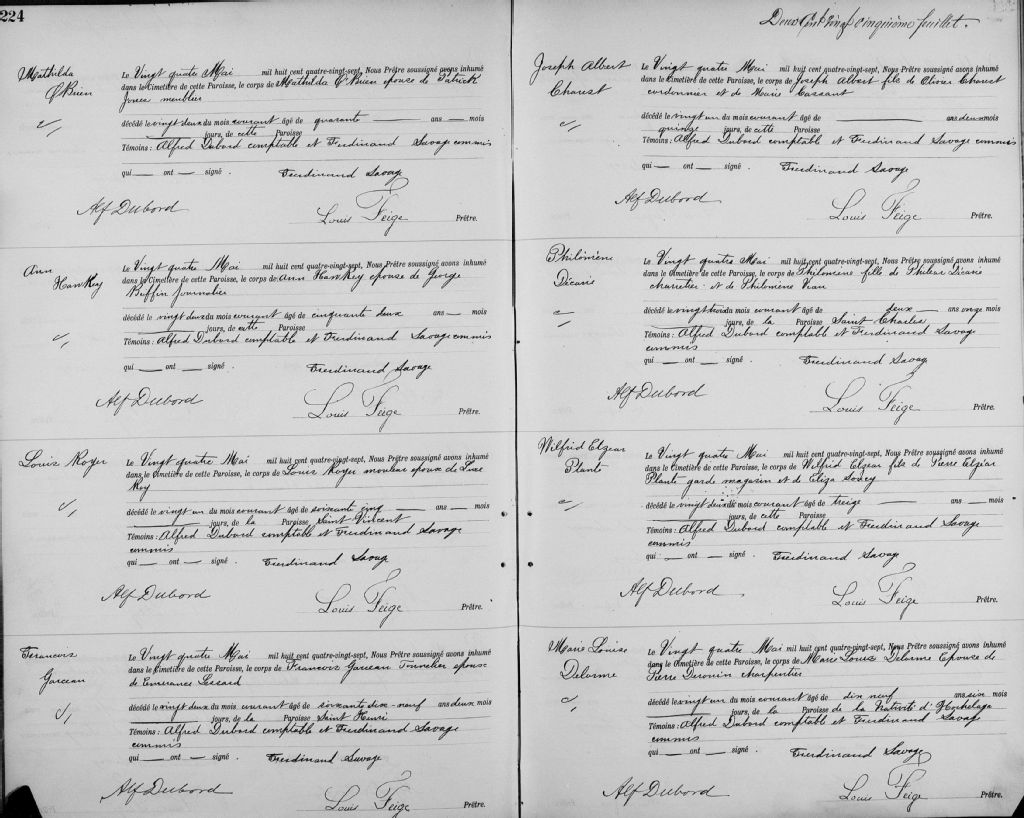 224
Mathilda
O'Brien
Le Vingt quatre Mai mil huit cent quatre-vingt-sept, Nous Prêtre soussigné avons inhumé
dans le Cimetière de cette Paroisse, le corps de Mathilda O'Brien epouse de Patrick
Jones meublier
décédé le vingt deux du mois courant âgé de quarante ans mois
jours, de cette Paroisse
Témoins : Alfred Dubord comptable et Ferdinand Savage commis
qui ont signé. Ferdinand Savage
Alf Dubord
Louis Feige Prêtre.
Ann
Hawkey
Le Vingt quatre Mai mil huit cent quatre-vingt-sept, Nous Prêtre soussigné avons inhumé
dans le Cimetière de cette Paroisse, le corps de Ann Hawkey epouse de George
Buffin journalier
décédé le vingt deux du mois courant âgé de cinquante deux ans mois
jours, de cette Paroisse
Témoins : Alfred Dubord comptable et Ferdinand Savage commis
qui ont signé. Ferdinand Savage
Alf Dubord
Louis Feige Prêtre.
Louis Royer
Le Vingt quatre Mai mil huit cent quatre-vingt-sept, Nous Prêtre soussigné avons inhumé
dans le Cimetière de cette Paroisse, le corps de Louis Royer mouleur epoux de
Roy
décédé le vingt un du mois courant âgé de soixante cinq ans mois
jours, de la Paroisse Saint Vincent
Témoins : Alfred Dubord comptable et Ferdinand Savage
commis
qui ont signé. Ferdinand Savage
Alf Dubord
Louis Feige Prêtre.
Francois
Garceau
Le Vingt quatre Mai mil huit cent quatre-vingt-sept, Nous Prêtre soussigné avons inhumé
dans le Cimetière de cette Paroisse, le corps de Francois Garceau Tonnelier epoux
de Emerance Lessard
décédé le vingt deux du mois courant âgé de soixante dix-neuf ans deux mois
jours, de la Paroisse Saint Henri
Témoins : Alfred Dubord comptable et Ferdinand Savage
commis
qui ont signé. Ferdinand Savage
Alf Dubord
Louis Feige Prêtre.
Deux Cent vingt cinquième feuillet.
Joseph Albert
Charest
Le Vingt quatre Mai mil huit cent quatre-vingt-sept, Nous Prêtre soussigné avons inhumé
dans le Cimetière de cette Paroisse, le corps de Joseph Albert fils de Olivier Charest
cordonnier et de Marie Cassant
décédé le vingt un du mois courant âgé de ans deux mois
quinze jours, de cette Paroisse
Témoins : Alfred Dubord comptable et Ferdinand Savage commis
qui ont signé. Ferdinand Savage
Alf Dubord
Louis Feige Prêtre.
Philomène
Décarie
Le Vingt quatre Mai mil huit cent quatre-vingt-sept, Nous Prêtre soussigné avons inhumé
dans le Cimetière de cette Paroisse, le corps de Philomène fille de Décarie
charretier et de Philomène Viau
décédé le vingt trois du mois courant âgé de deux ans onze mois
jours, de la Paroisse Saint Charles
Témoins : Alfred Dubord comptable et Ferdinand Savage
commis
qui ont signé. Ferdinand Savage
Alf Dubord
Louis Feige Prêtre.
Wilfrid Elzear
Plante
Le Vingt quatre Mai mil huit cent quatre-vingt-sept, Nous Prêtre soussigné avons inhumé
dans le Cimetière de cette Paroisse, le corps de Wilfrid Elzear fils de Pierre Elzéar
Plante garde magasin et de Eliza
décédé le vingt deux du mois courant âgé de treize ans mois
jours, de cette Paroisse
Témoins : Alfred Dubord comptable et Ferdinand Savage
commis
qui ont signé. Ferdinand Savage
Alf Dubord
Louis Feige Prêtre.
Marie Louise
Delorme
Le Vingt quatre Mai mil huit cent quatre-vingt-sept, Nous Prêtre soussigné avons inhumé
dans le Cimetière de cette Paroisse, le corps de Marie Louise Delorme Epouse de
Pierre Drouin charpentier
décédé le vingt un du mois courant âgé de dix neuf ans six mois
jours, de la Paroisse de la Nativité d'Hochelaga
Témoins : Alfred Dubord comptable et Ferdinand Savage
commis
qui ont signé. Ferdinand Savage
Alf Dubord
Louis Feige Prêtre.